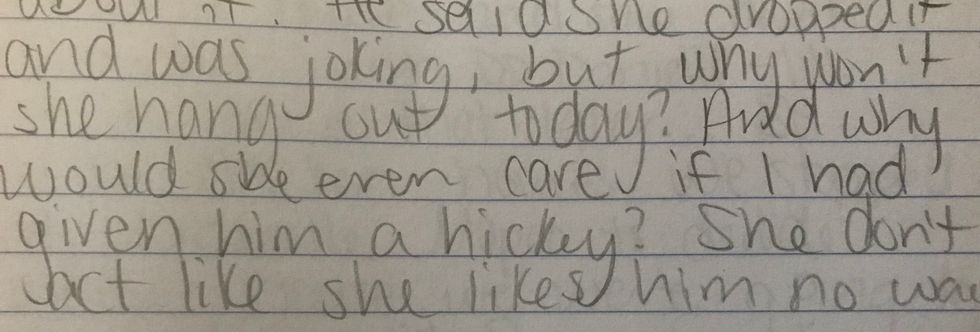 about it. He said she dropped it
and was joking, but why won't
she hang out today? And why
would she even care if I had
given him a hickey? She don't
act like she likes him no way